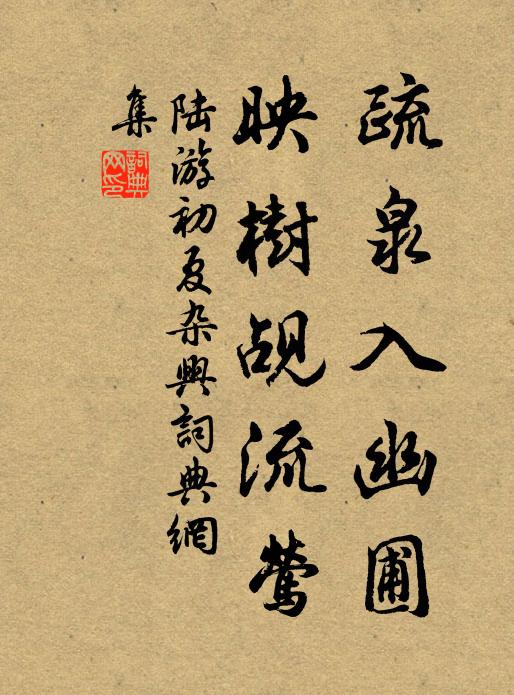 疏泉入幽圃
映樹覘流鶯
陆游初夏杂興詞典網
集
詞典
网印